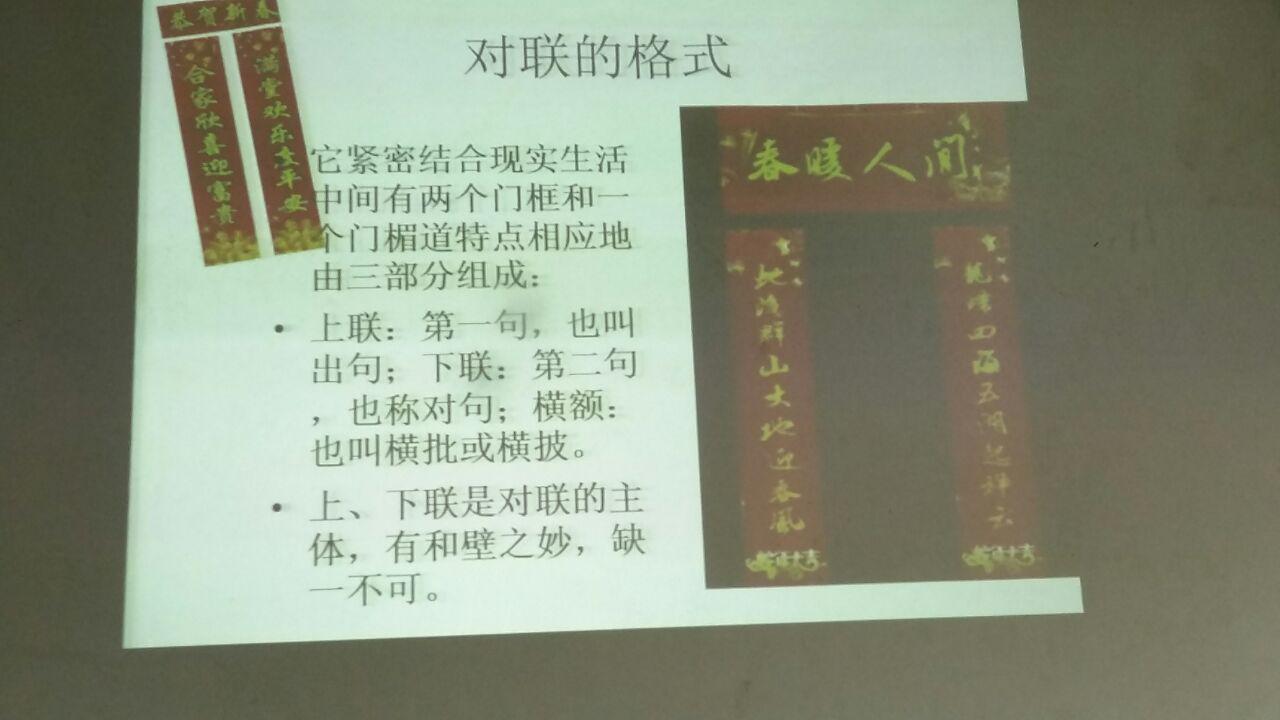 恭贺新春
满堂欢乐贵平安
合家欣喜迎富贵
对联的格式
它紧密结合现实生活
中间有两个门框和一
个门楣道特点相应地
由三部分组成：
• 上联：第一句，也叫
出句；下联：第二句
，也称对句；横额：
也叫横批或横披。
• 上、下联是对联的主
体，有和壁之妙，缺
一不可。
春暖人间
四海五湖起祥云
地满群山大地迎春风